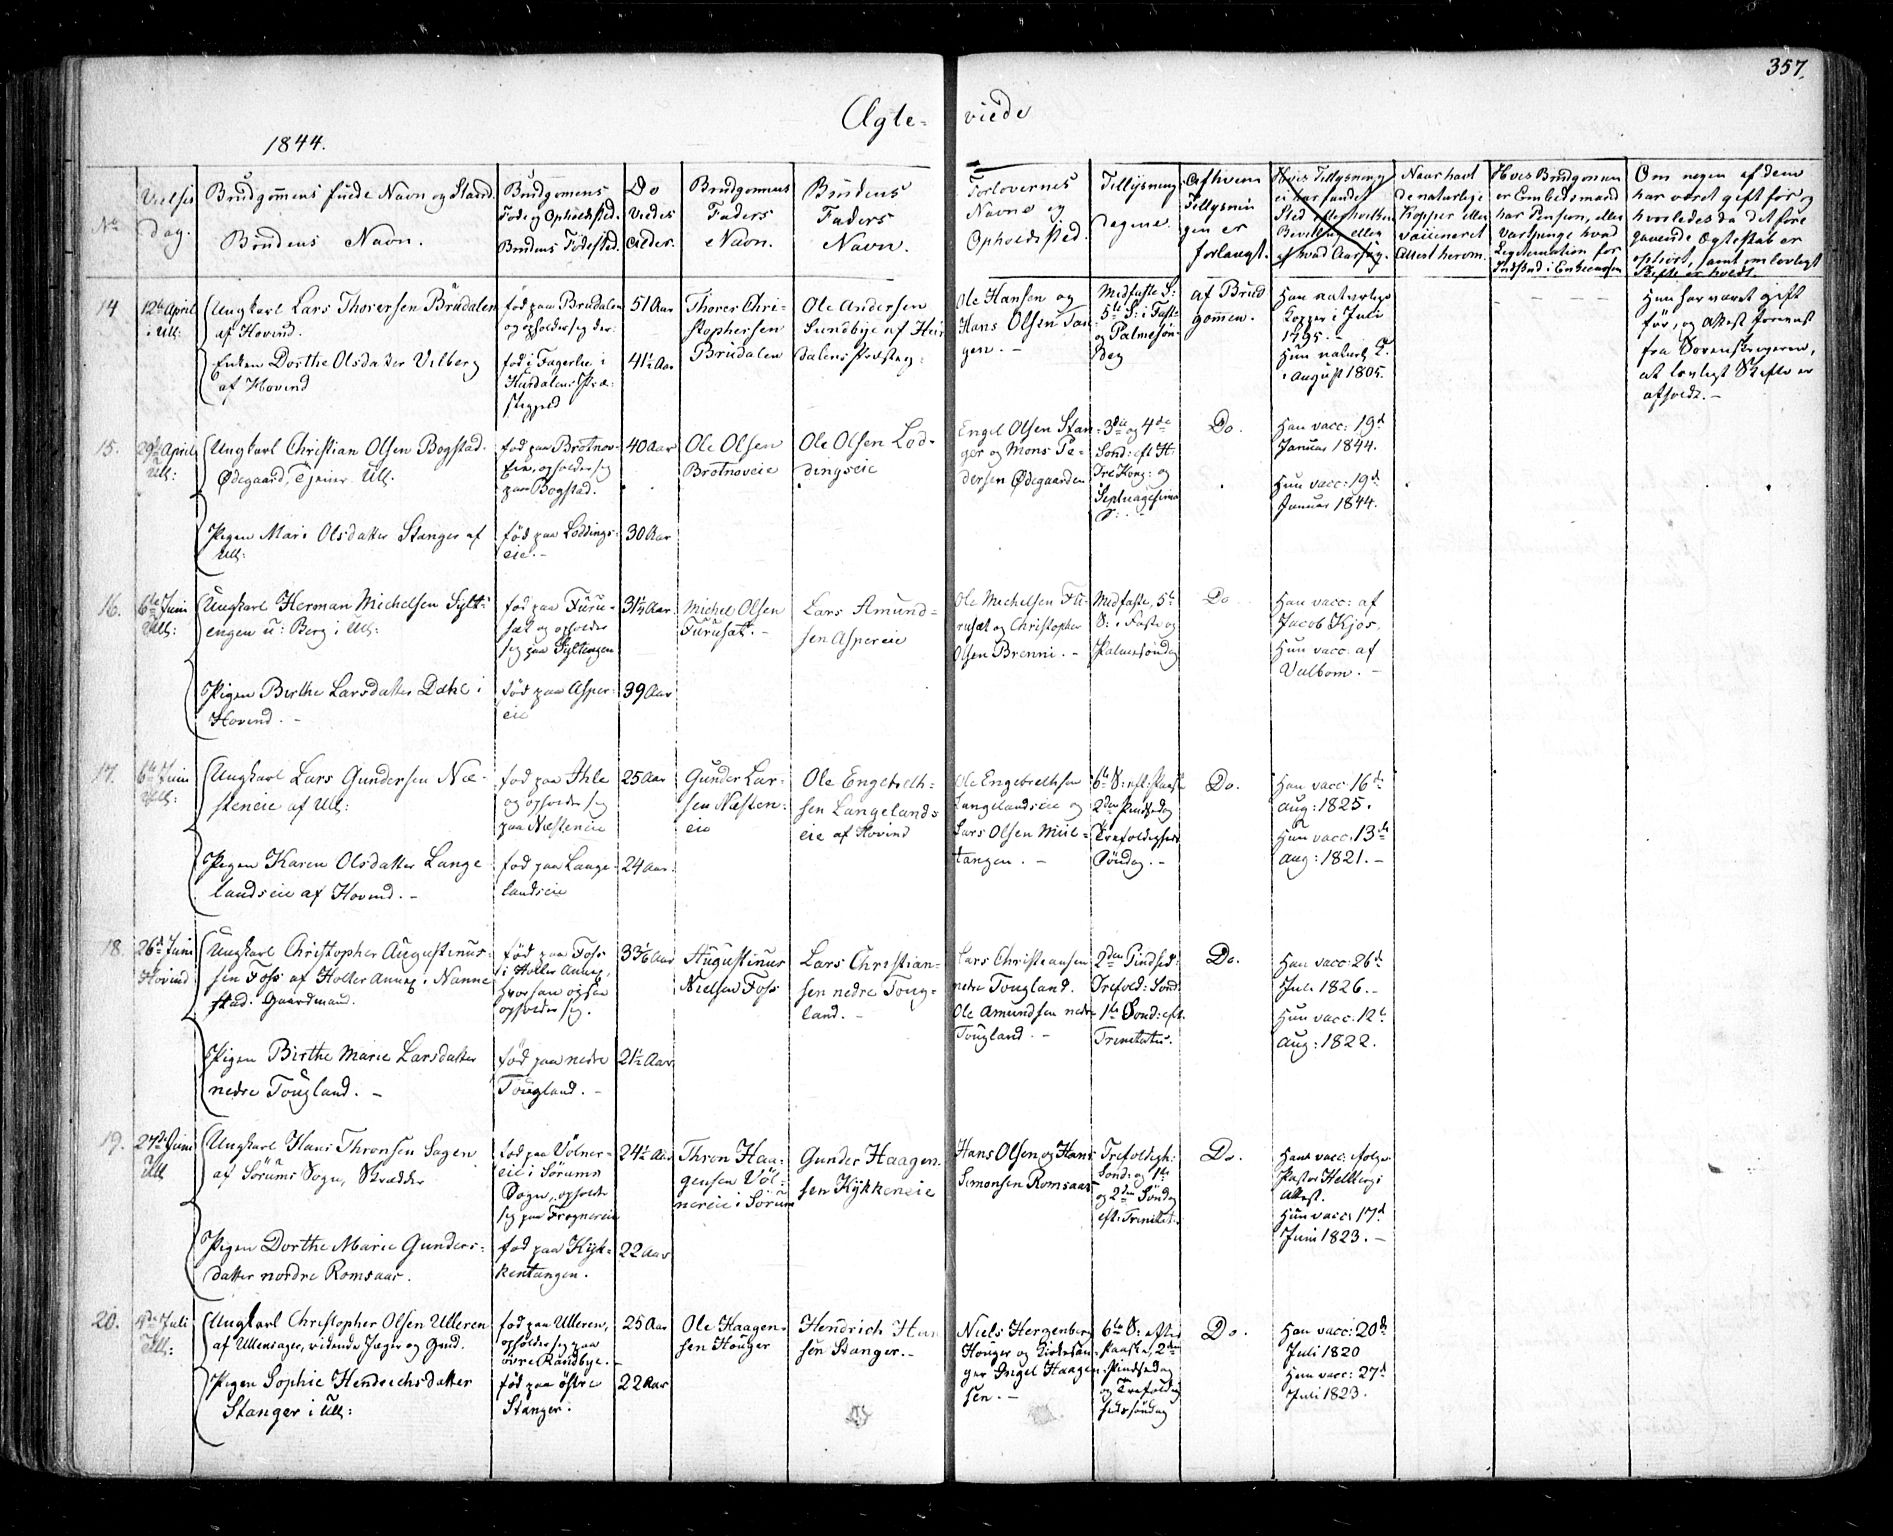 357.
Ægte- viede
1844.
No
Vielses Dag.
Brudgommens fulde Navn og Stand.
Brudens Navn.
Brudgomens
Føde og Opholdsted.
Brudens Fødested.
Do
Viedes
Alder.
Brudgommens
Faders
Navn.
Brudens
Faders
Navn.
Forlovernes
Navne og
Opholdsted.
Tillysnings
Dagene.
Af hvem
Tillysnin
gen er
forlangt.
Hvis Tillysning
ei har fundet
Sted efter hvilken
Bevilling eller
af hvad Aarsag.
Naar havt
de naturlige
Kopper eller
vaccineret
Attest herom.
Hvis Brudgomen
er Embedsmand
har Pension, eller
Vartpenge hvad
Legitimation for
Indskud i Enkecassen
Om nogen af dem
har været gift før og
hvorledes da det fore
gaaende Ægteskab er
ophört, samt om lovligt
Skifte er holdt.
14
12te April
i Ull:
Ungkarl Lars Thorersen Brudalen
af Hovind.
Enken Dorthe Olsdatter Vilberg
af Hovind
fød paa Brudalen
og opholder sig der.
fød i Fagerlie i
Hurdalens Præ-
stegjeld
51 Aar
41½ Aar
Thorer Chri-
stophersen
Brudalen
Ole Andersen
Sundbye af Hur
dalens Præsteg:
Ole Hansen og
Hans Olsen Tan-
gen. -
Midfaste S:
5te S: i Fast-
og Palmesøn-
dag
af Brud
gommen.
Han naturlige
Kopper i Juli
1795. -
Hun naturl. K.
i August 1805.
Hun har været gift
før, og Attest foreviist
fra Sorenskriveren,
at lovligt Skifte er
afholdt. -
15.
29de April
Ull:
Ungkarl Christian Olsen Bogstad.
Ødegaard, Tjener Ull.
Pigen Mari Olsdatter Stanger af
Ull:
fød paa Brotnov-
eie, opholder sig
paa Bogstad.
fød paa Loddings-
eie. -
40 Aar
30 Aar
Ole Olsen
Brotnoveie
Ole Olsen Lod-
dingseie
Engel Olsen Stan-
ger og Mons Pe-
dersen Ødegaarden
3die og 4de
Sond: eft H.
Tre Kong: og
Septuagesima
S: -
Do.
Han vacc: 19d
Januar 1844.
Hun vacc: 19d
Januar 1844.
16.
6te Juni
Ull:
Ungkarl Herman Michelsen Fylt-
engen u: Berg i Ull:
Pigen Birthe Larsdatter Dahl i
Hovind. -
fød paa Furu-
sæt og opholder
sig paa Fyltengen
fød paa Asper-
eie
31½ Aar
39 Aar
Michel Olsen
Furusæt. -
Lars Amund-
sen Aspereie
Ole Michelsen Fu-
rusæt og Christopher
Olsen Brenni. -
Midfaste, 5te
S: i Faste og
Palmesøndag
Do
Han vacc: af
Jacob Kjos.
Hun vacc: af
Valbom. -
17.
6te Juni
Ull:
Ungkarl Lars Gundersen Næ-
steneie af Ull:
Pigen Karen Olsdatter Lange
landseie af Hovind. -
fød paa Ihle
og opholder sig
paa Næsteneie
fød paa Lange-
landseie
25 Aar
24 Aar.
Gunder Lar-
sen Næsten-
eie
Ole Engebreth-
sen Langelands
eie af Hovind
Ole Engebrethsen
Langelandseie og
Lars Olsen Mül-
tangen. -
6te S: eft: Paaske
2den Pindsedag
Trefoldigheds
Søndag. -
Do.
Han vacc 16de
Aug: 1825.
Hun vacc: 13de
Aug: 1821. -
18.
26d Juni
Hovind
Ungkarl Christopher Augustinus-
sen Foss af Holler Annex i Nanne
stad. Gaardmand.
Pigen Birthe Marie Larsdatter
nedre Tougland. -
fød paa Foss
i Holler Annex,
hvor han ogsaa
opholder sig.
fød paa nedre
Tougland. -
33⅙ Aar
21½ Aar
Augustinus
Nielsen Foss
Lars Christian-
sen nedre Toug-
land. -
Lars Christiansen
nedre Tougland.
Ole Amundsen nedre
Tougland. -
2den Pindsed:
Trefold: Sond
1te Sond: eft.
Trinitatis.
Do.
Han vacc: 26de
Juli 1826. -
Hun vacc: 12te
Aug: 1822.
19.
27de Juni
Ull
Ungkarl Hans Thronsen Sagen
af Sørums Sogn, Skrædder
Pigen Dorthe Marie Gunders-
datter nordre Romsaas.
fød paa Volner-
eie i Sørums
Sogn, opholder
sig paa Frognereie
fød paa Kyk-
kentangen.
24½ Aar
22 Aar
Thron Haa-
gensen Vol-
nereie i Sørum
Gunder Haagen-
sen Kykkeneie
Hans Olsen og Hans
Simonsen Romsaas
Trefoldigh:
Sond: og 1te
og 2den Sønd
eft: Trinitat:
Do.
Han vacc: ifølge
Pastor Hellbergs
Attest.
Hun vacc 17d
Juni 1823. -
20.
4de Juli
Ull:
Ungkarl Christopher Olsen Ulleren
af Ullensager, ridende Jæger og Gmd.
Pigen Sophie Hendrichsdatter
Stanger i Ull:
fød paa Ulleren,
opholder sig paa
övre Randbye. -
fød paa östre
Stanger.
25 Aar
22 Aar
Ole Haagen-
sen Houger
Hendrich Han
sen Stanger. -
Niels Hergenberg
Houger og Kirkesan-
ger Engel Haagen-
sen. -
6te S: efter
Paaske, 2den
Pindsedag
og Trefoldig
hedssøndag
Do.
Han vacc: 20de
Juli 1820
Hun vacc: 27d
Juli 1823.